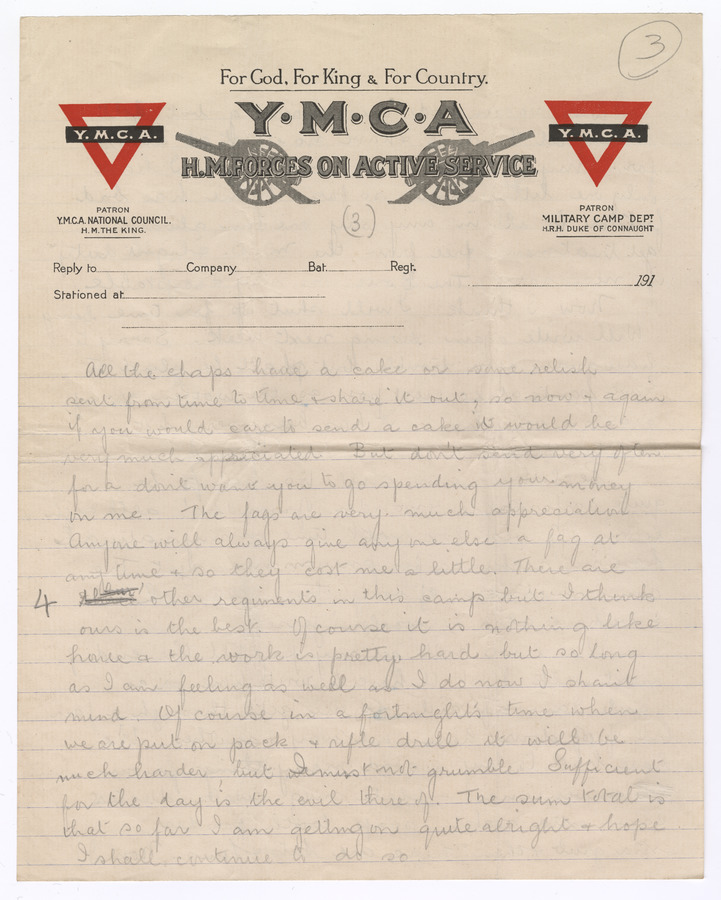 3
For God, For King & For Country.
Y·M·C·A
Y.M.C.A.
Y.M.C.A.
H.M. FORCES ON ACTIVE SERVICE
PATRON
Y.M.C.A. NATIONAL COUNCIL.
H.M. THE KING.
(3)
PATRON
MILITARY CAMP DEPT
H.R.H. DUKE OF CONNAUGHT
Reply to Company Bat. Regt.
191
Stationed at
All the chaps have a cake or some relish
sent from time to time & share it out, so now & again
if you would care to send a cake it would be
very much appreciated But don't send very often
for a dont want you to go spending your money
on me. The fags are very much appreciation
Anyone will always give any one else a fag at
any time & so they cost me a little. There are
4 other regiments in this camp but I think
ours is the best. Of course it is nothing like
home & the work is pretty hard but so long
as I am feeling as well as I do now I shan't
mind. Of course in a fortnight's time when
we are put on pack & rifle drill it will be
much harder, but I must not grumble Sufficient
for the day is the evil there of. The sum total is
that so far I am getting on quite alright & hope
I shall continue to do so